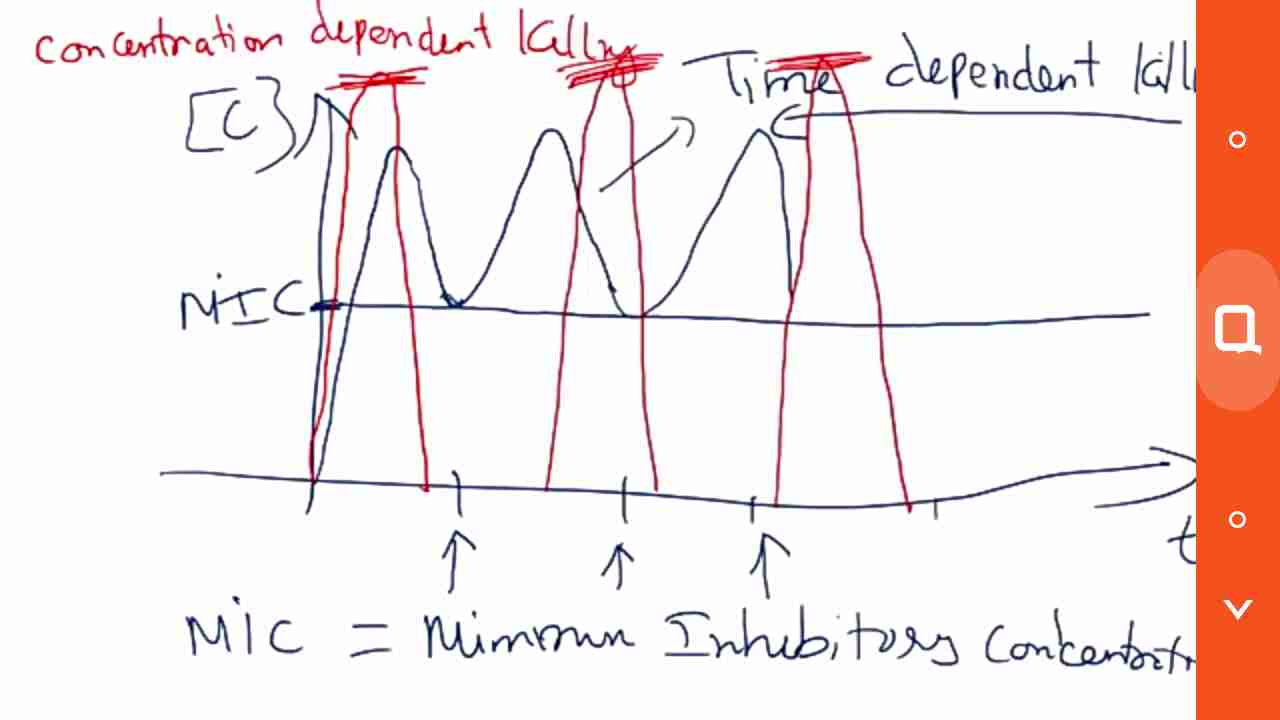 concentration dependent Killing
Time dependent kill
[C]
MIC
t
MIC = Minimum Inhibitory Concentrat